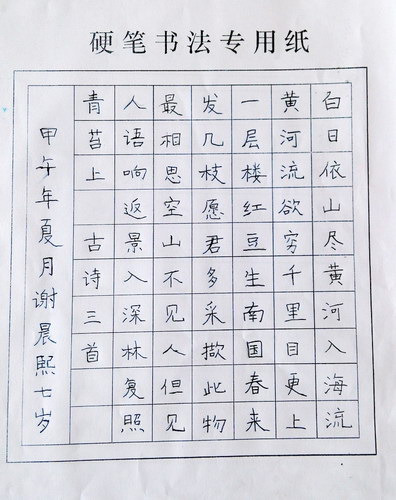 硬笔书法专用纸
白日依山尽黄河入海流
黄河流欲穷千里目更上
一层楼红豆生南国春来
发几枝愿君多采撷此物
最相思空山不见人但见
人语响返景入深林复照
青苔上 古诗三首
甲午年夏月谢晨熙七岁